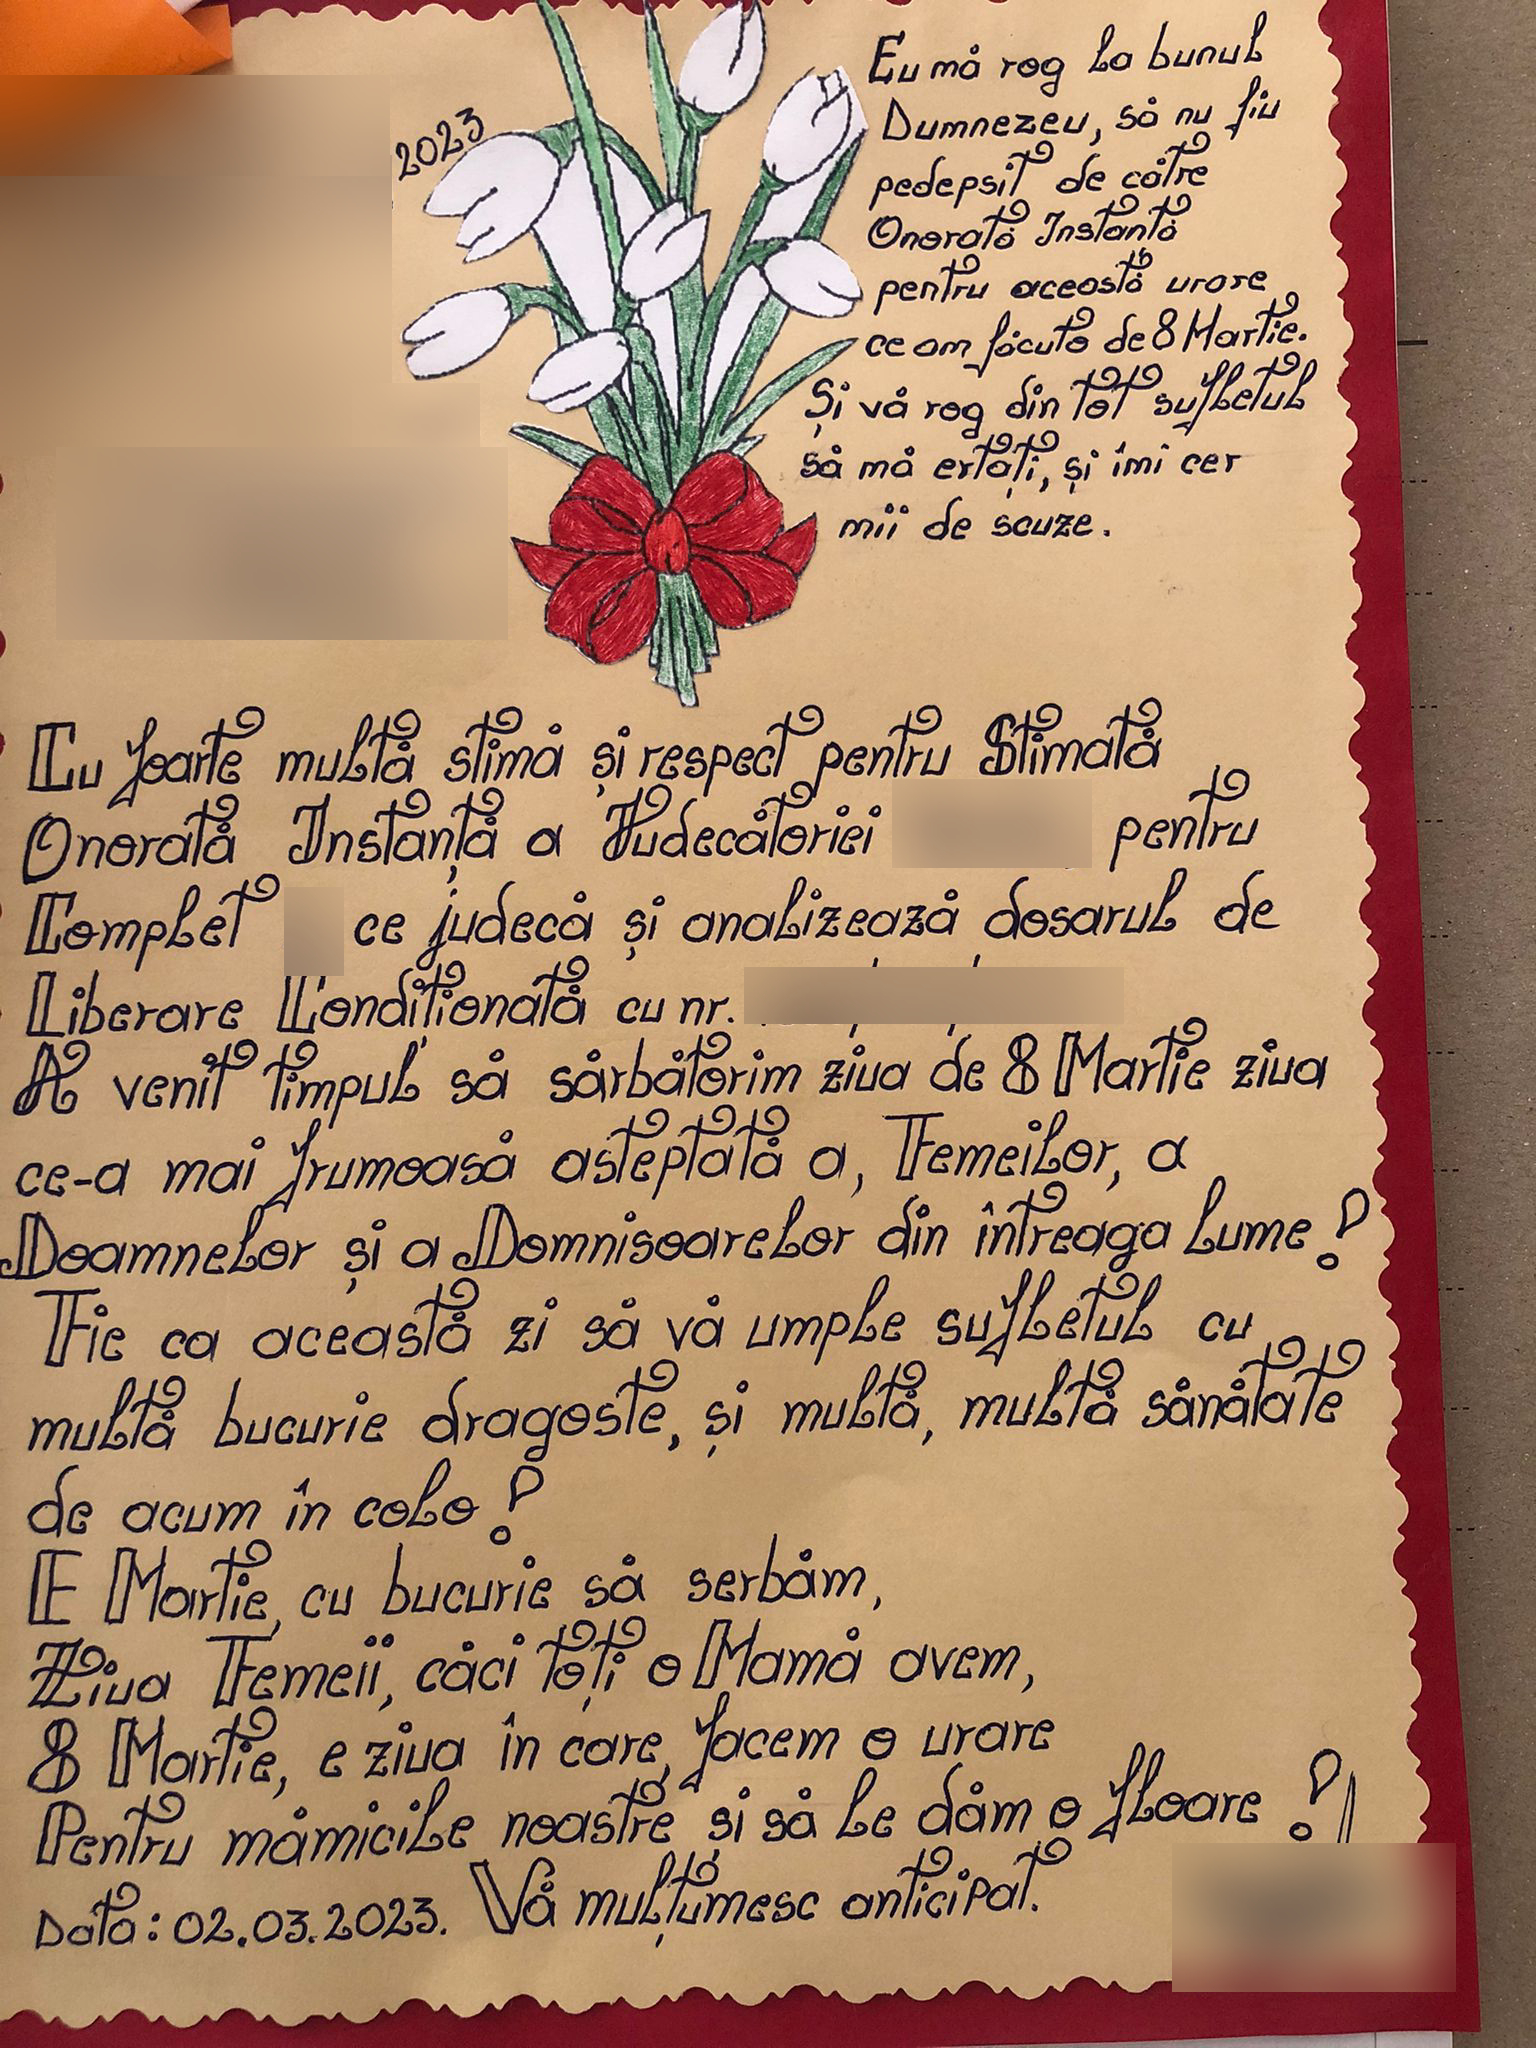 2023
Eu mă rog la bunul
Dumnezeu, să nu fiu
pedepsit de către
Onorată Instanță
pentru această urare
ce am făcuto de 8 Martie.
Și vă rog din tot sufletul
să mă ertați, și îmi cer
mii de scuze.
Cu foarte multă stimă și respect pentru Stimată
Onorată Instanță a Judecătoriei pentru
Complet ce judecă și analizează dosarul de
Liberare Condiționată cu nr.
A venit timpul să sărbătorim ziua de 8 Martie ziua
ce-a mai frumoasă asteptată a, Femeilor, a
Doamnelor și a Domnisoarelor din întreaga lume!
Fie ca această zi să vă umple sufletul cu
multă bucurie dragoste, și multă, multă sănătate
de acum în colo!
E Martie, cu bucurie să serbăm,
Ziua Femeii, căci toți o Mamă avem,
8 Martie, e ziua în care, facem o urare
Pentru mămicile noastre și să le dăm o floare!
Data: 02.03.2023. Vă mulțumesc anticipat.